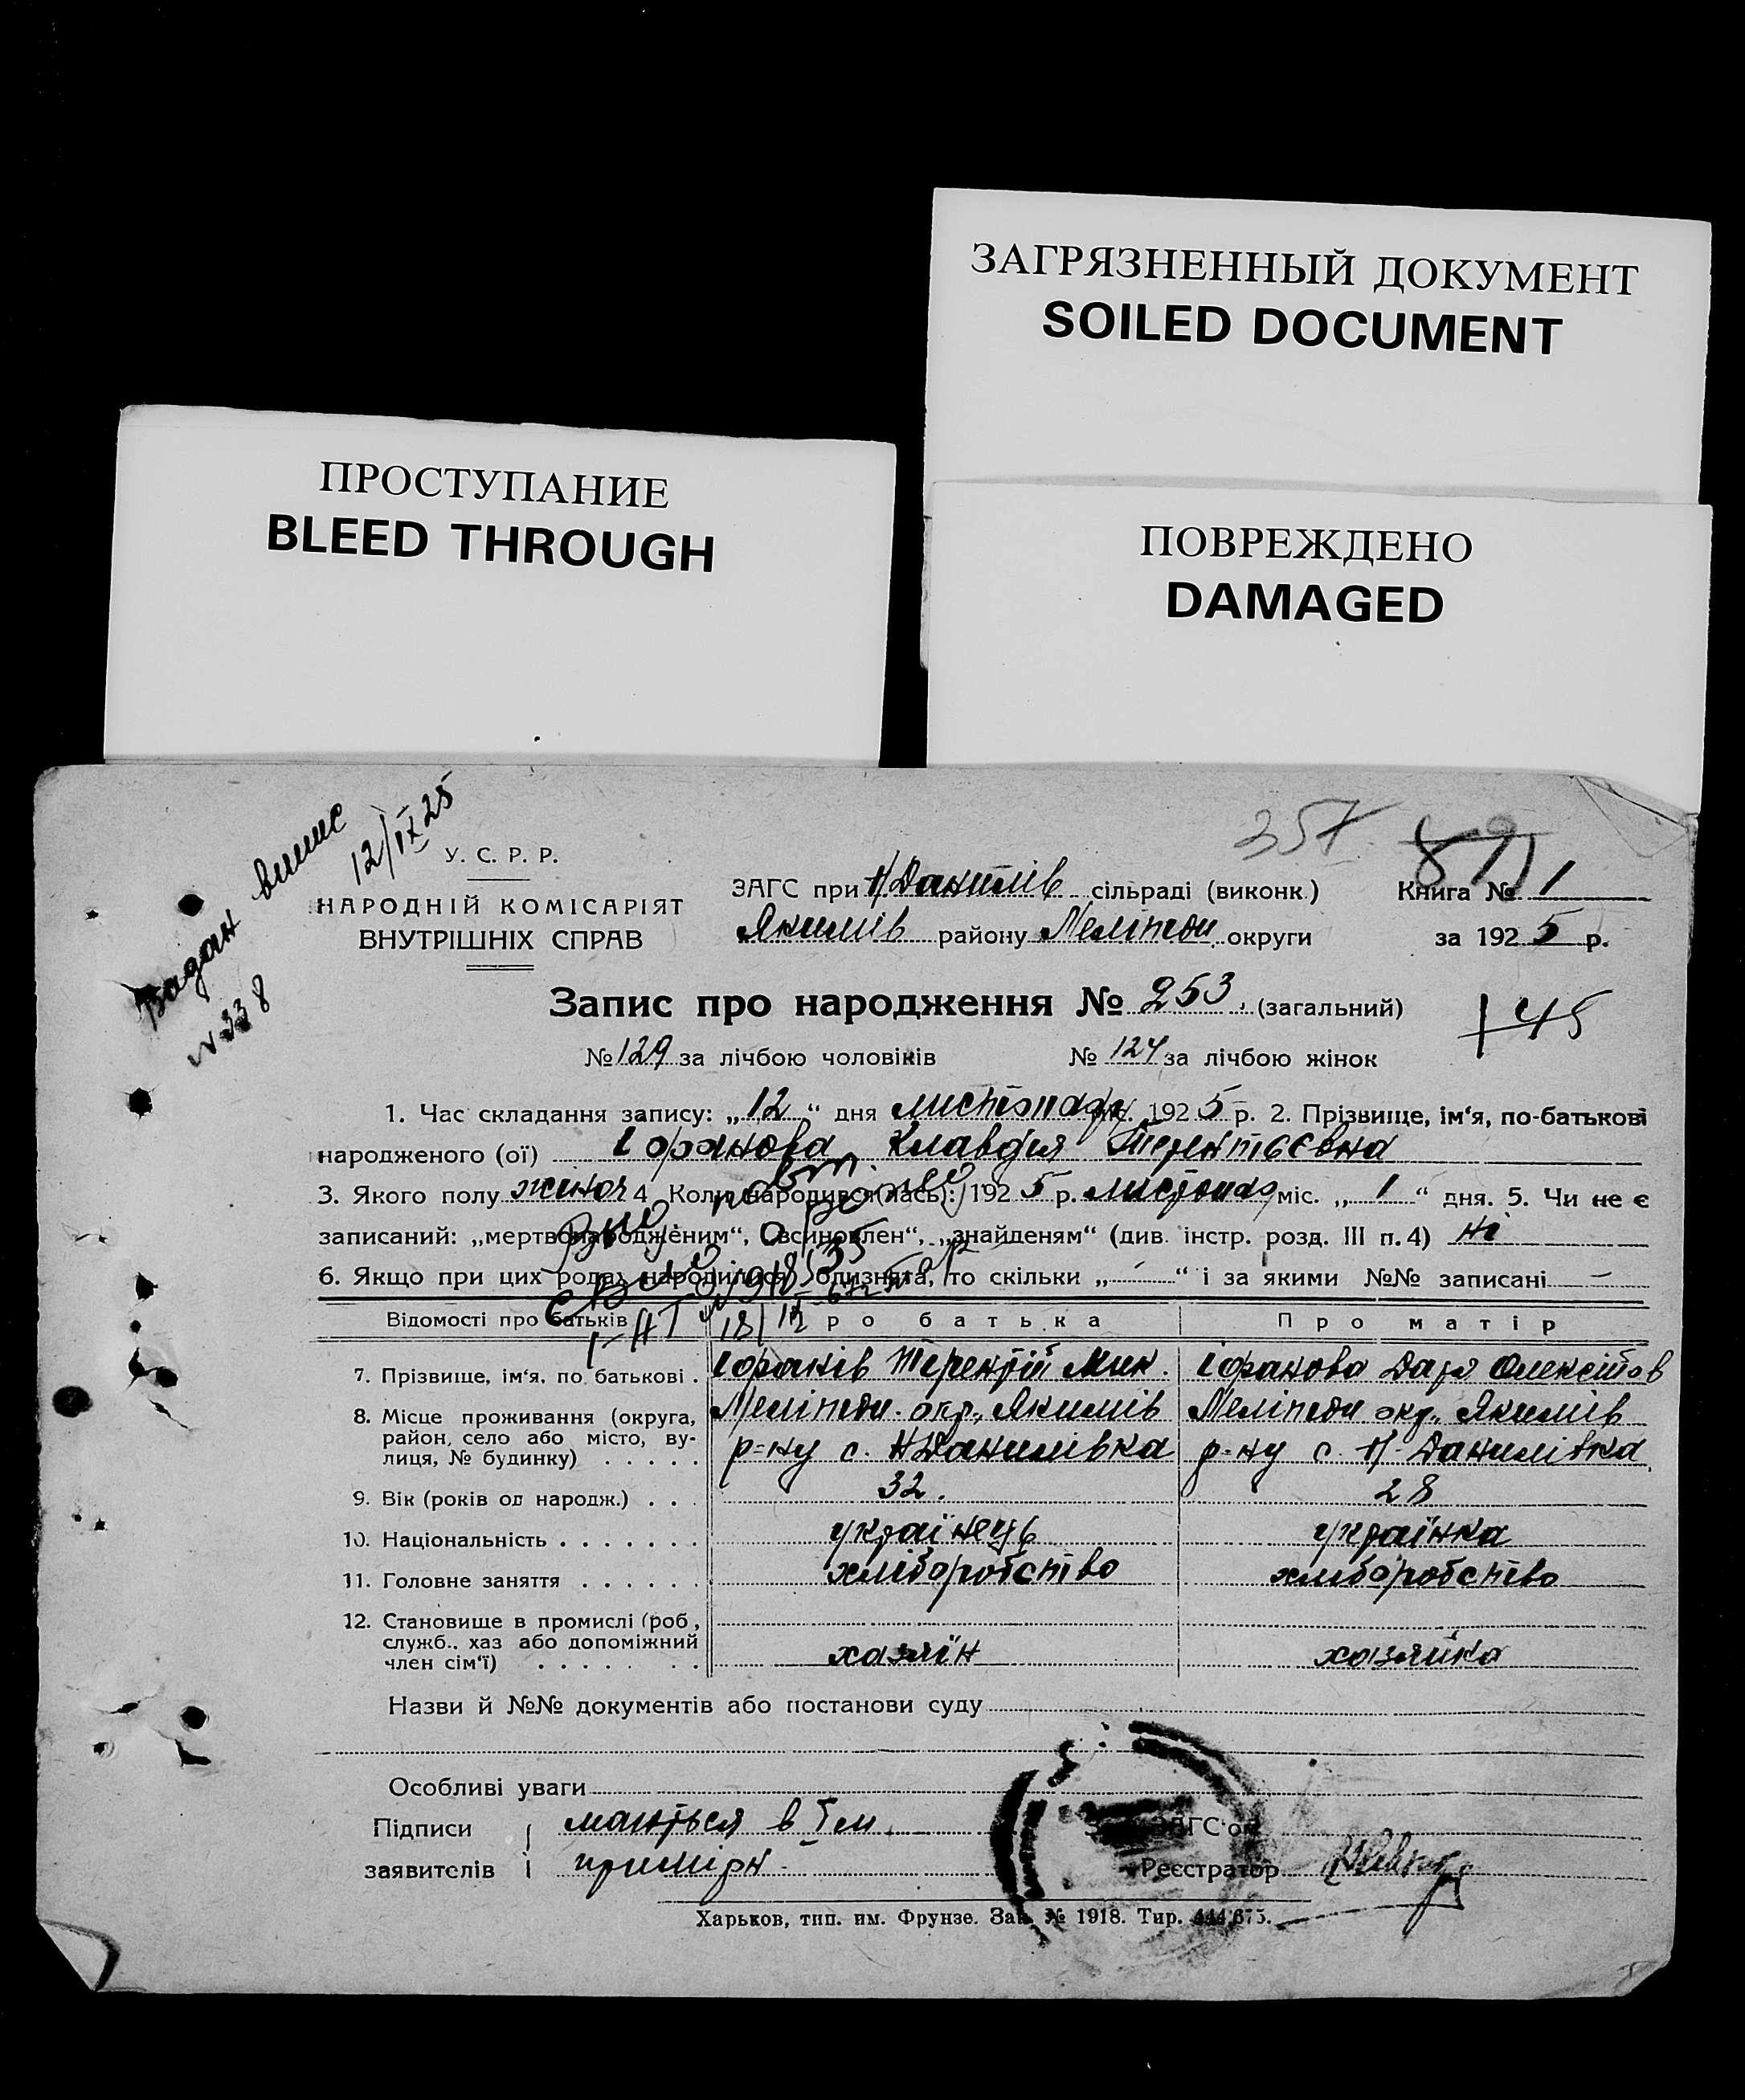 ЗАГРЯЗНЕННЫЙ ДОКУМЕНТ
SOILED DOCUMENT
ПРОСТУПАНИЕ
BLEED THROUGH
ПОВРЕЖДЕНО
DAMAGED
випис
12/IX 25
№ 338
357
У. С. Р. Р.
НАРОДНІЙ КОМІСАРІЯТ
ВНУТРІШНІХ СПРАВ
ЗАГС при Н/Данилів сільраді (виконк.) Книга № 1
Якимів району Меліподи округи за 1925 р.
Запис про народження № 253 (загальний)
145
№ 129 за лічбою чоловіків № 124 за лічбою жінок
1. Час складання запису: „12“ дня листопада 1925 р. 2. Прізвище, ім‘я, по-батькові
народженого (ої) Клавдія Терентьєвна
3. Якого полу жіноч 4 Коли народився(лась): 1925 р. листопад міс. „1“ дня. 5. Чи не є
записаний: „мертвонародженим“, „всиновлен“, „знайденям“ (див. інстр. розд. III п. 4) ні
6. Якщо при цих родах народилися близнята, то скільки „-“ і за якими №№ записані -
Відомості про батьків Про батька Про матір
7. Прізвище, ім‘я, по батькові . Терентій Мик. Дар'я
8. Місце проживання (округа, район, село або місто, вулиця, № будинку) . . . . .
Меліподи. окр., Якимів Меліподи окр., Якимів
р-ну с. Н Данилівка р-ну с. Н-Данилівка
9. Вік (років од народж.) . . . 32. 28
10. Національність . . . . . . . українець українка
11. Головне заняття . . . . . . хліборобство хліборобство
12. Становище в промислі (роб,
служб., хаз або допоміжний
член сім‘ї) . . . . . . . хазяїн хазяйка
Назви й №№ документів або постанови суду
Особливі уваги
Підписи маються в І ем
заявителів примірн
ЗАГС‘ом
Реєстратор
Харьков, тип. им. Фрунзе. Зак. № 1918. Тир. 444,675.